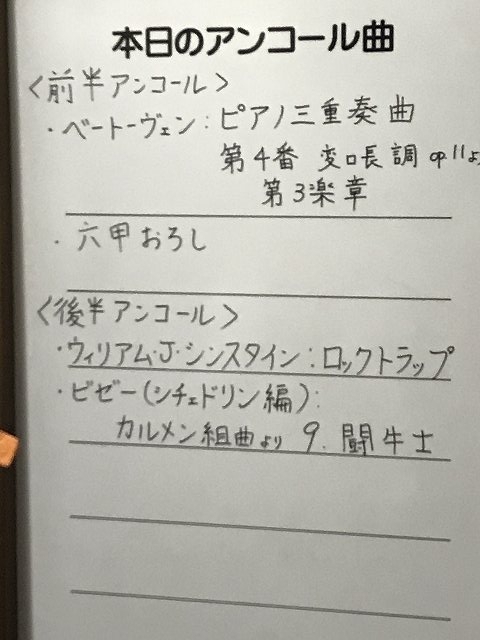 本日のアンコール曲
〈前半アンコール〉
・ベートーヴェン：ピアノ三重奏曲
第4番 変ロ長調 op11より
第3楽章
・六甲おろし
〈後半アンコール〉
・ウィリアム・J・シンスタイン：ロックトラップ
・ビゼー（シチェドリン編）：
カルメン組曲より 9. 闘牛士